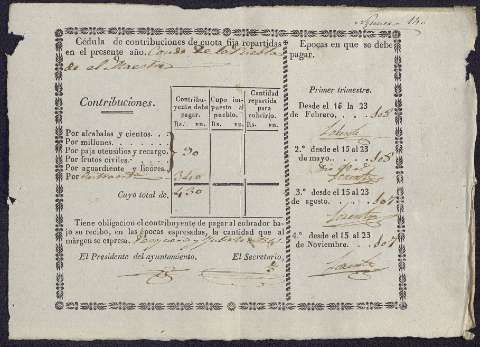 Numero 14.
Cédula de contribuciones de cuota fija repartidas
en el presente año. Conde de la Puebla
de el Maestre
Contribuciones.
Contribu-
yente debe
pagar.
Rs. vn.
Cupo impuesto
al pueblo.
Rs. vn.
Cantidad
repartida
para
cubrirlo.
Rs. vn.
Por alcabalas y cientos.
Por millones.
Por paja utensilios y recargo.
Por frutos civiles.
Por aguardiente y licores.
Por
90
340
Cuyo total de.
430
Tiene obligacion el contribuyente de pagar al cobrador bajo
su recibo, en las épocas espresadas, la cantidad que al
márgen se espresa.
El Presidente del ayuntamiento.
El Secretario,
Epocas en que se debe
pagar.
Primer trimestre.
Desde el 15 al 23
de Febrero.
2.º desde el 15 al 23
de mayo.
3.º desde el 15 al 23
de agosto.
4.º desde el 15 al 23
de Noviembre.